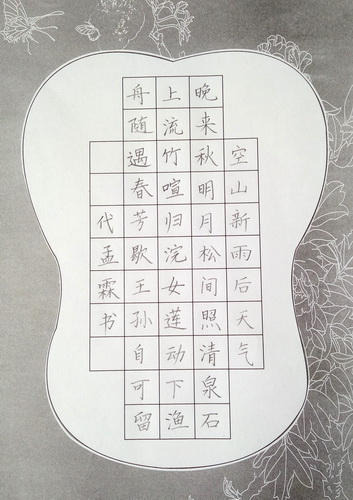 空山新雨后天气
晚来秋明月松间照清泉石
上流竹喧归浣女莲动下渔
舟随遇春芳歇王孙自可留
代孟霖书